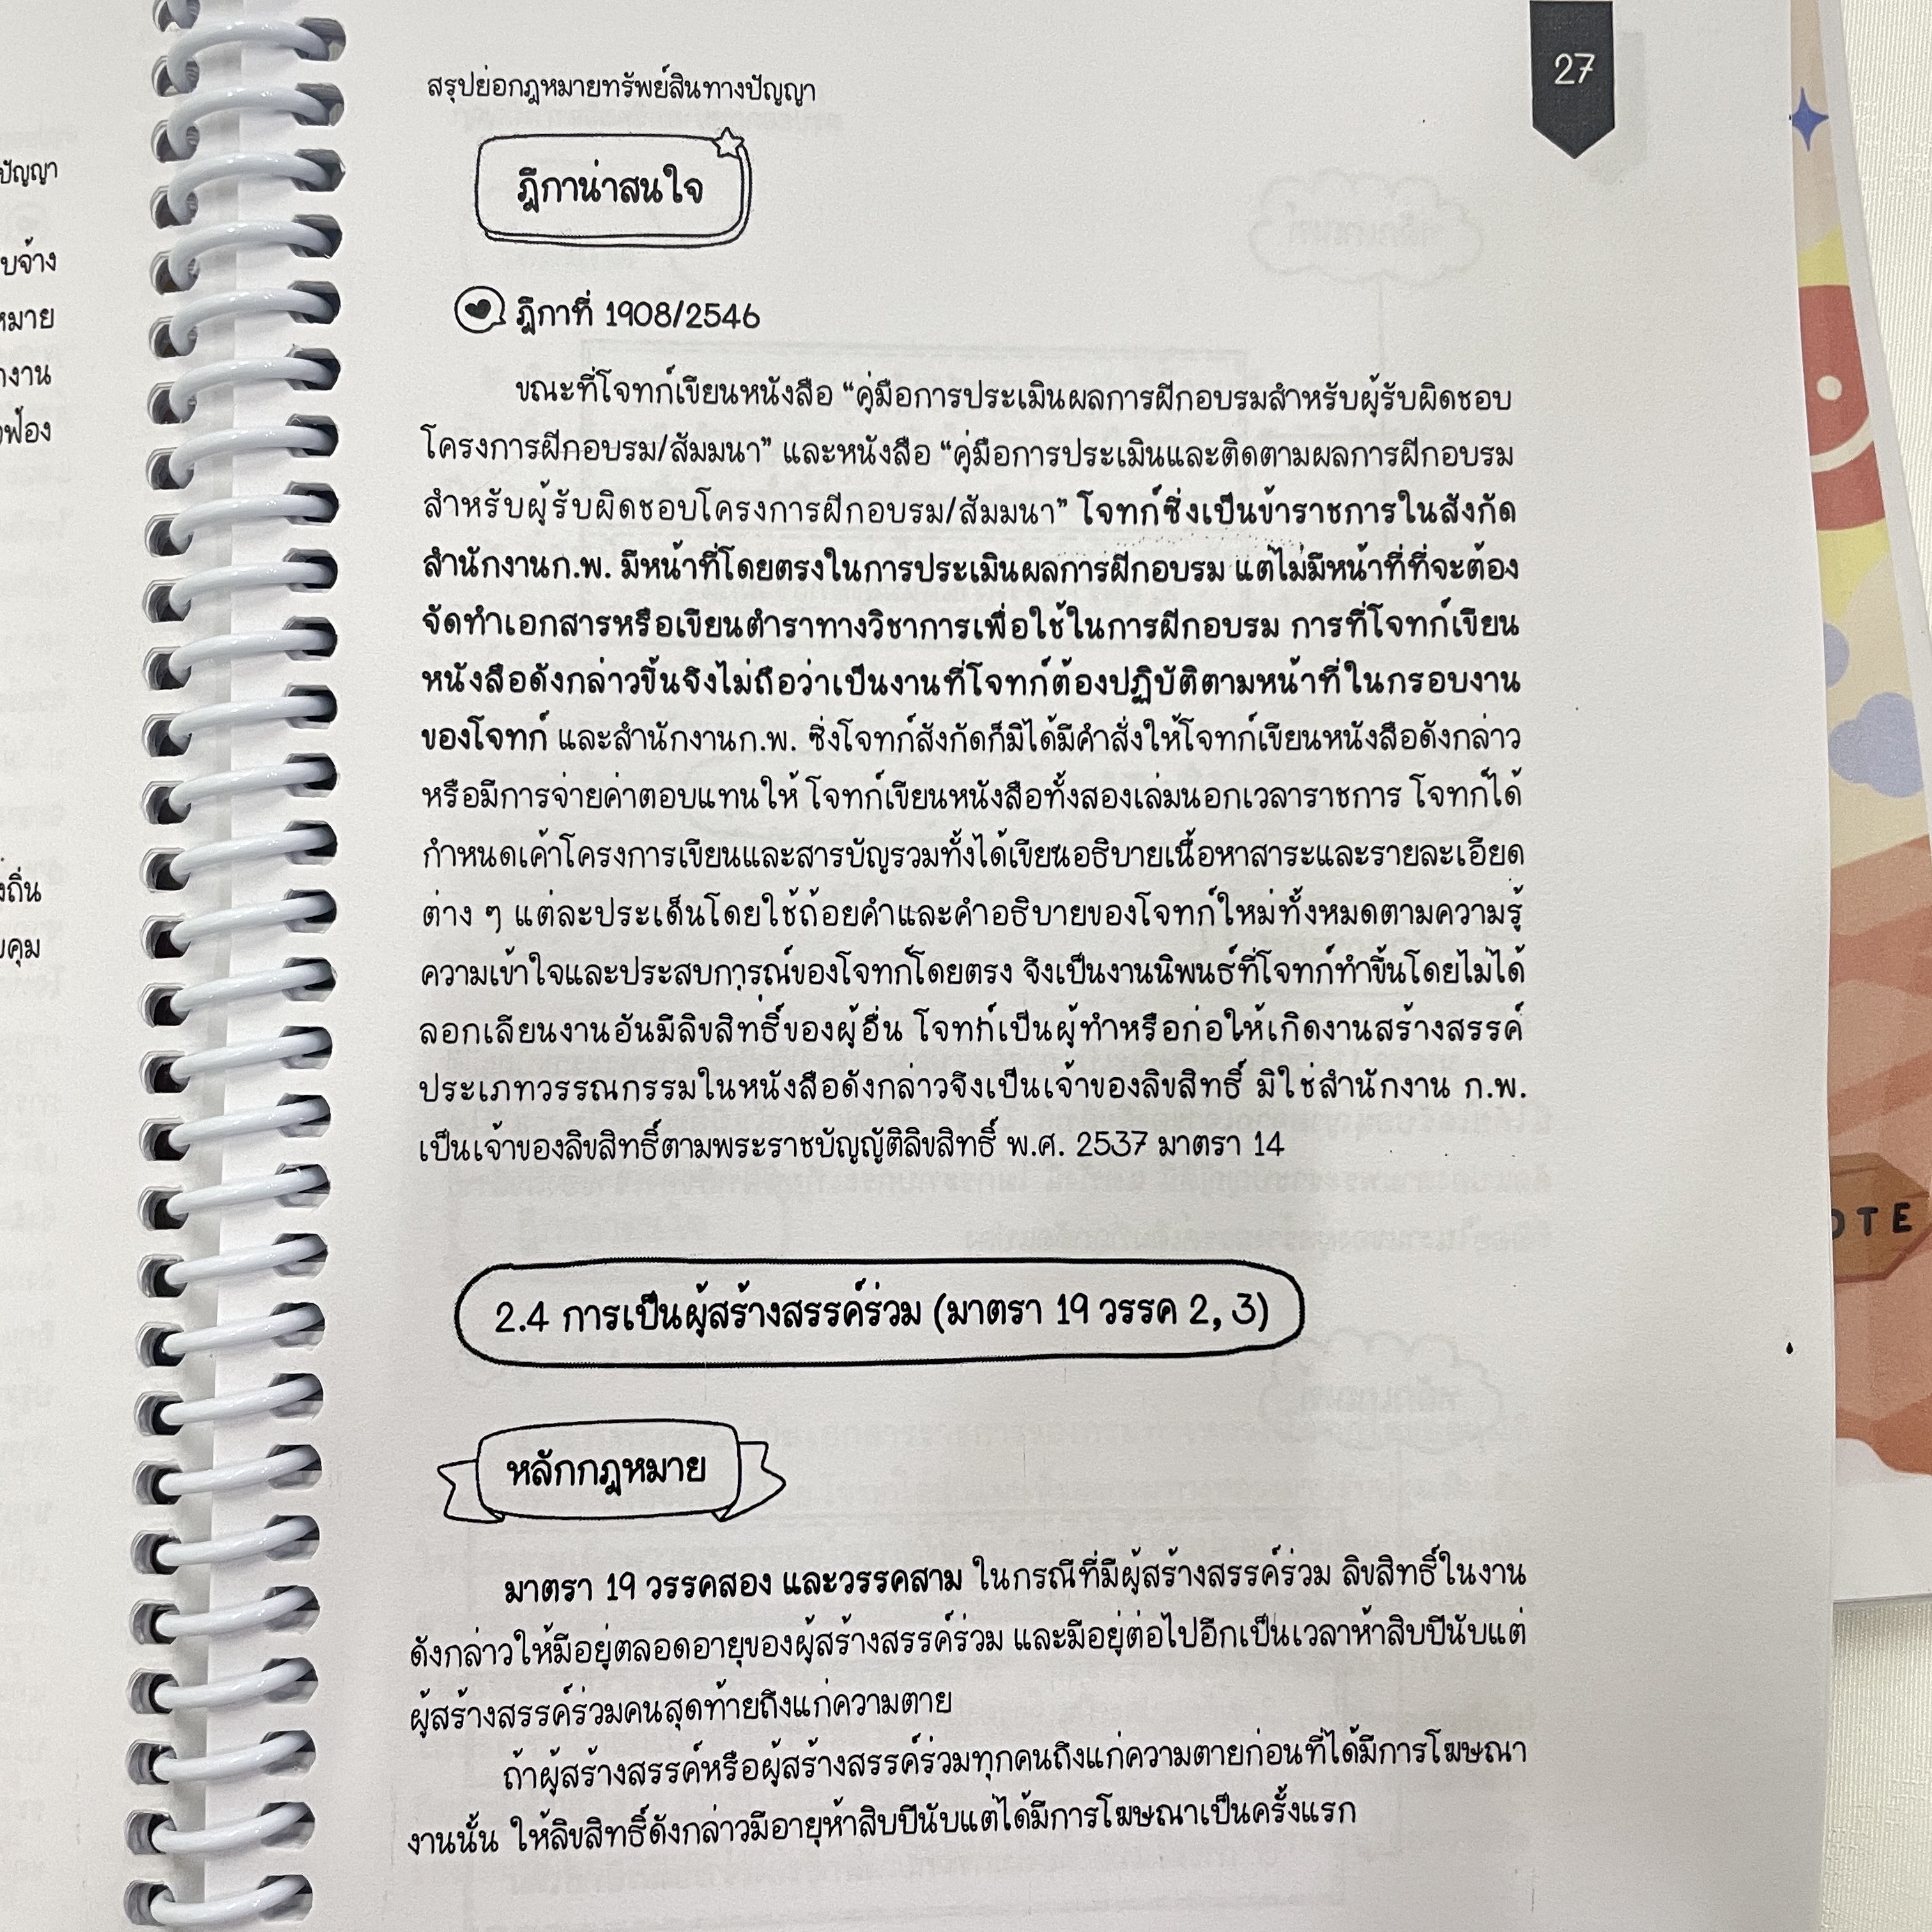 สรุปย่อกฎหมายทรัพย์สินทางปัญญา
27
ฎีกาน่าสนใจ
ฎีกาที่ 1908/2546
ขณะที่โจทก์เขียนหนังสือ “คู่มือการประเมินผลการฝึกอบรมสำหรับผู้รับผิดชอบ
โครงการฝึกอบรม/สัมมนา” และหนังสือ “คู่มือการประเมินและติดตามผลการฝึกอบรม
สำหรับผู้รับผิดชอบโครงการฝึกอบรม/สัมมนา” โจทก์ซึ่งเป็นข้าราชการในสังกัด
สำนักงานก.พ. มีหน้าที่โดยตรงในการประเมินผลการฝึกอบรม แต่ไม่มีหน้าที่ที่จะต้อง
จัดทำเอกสารหรือเขียนตำราทางวิชาการเพื่อใช้ในการฝึกอบรม การที่โจทก์เขียน
หนังสือดังกล่าวขึ้นจึงไม่ถือว่าเป็นงานที่โจทก์ต้องปฏิบัติตามหน้าที่ในกรอบงาน
ของโจทก์ และสำนักงานก.พ. ซึ่งโจทก์สังกัดก็มิได้มีคำสั่งให้โจทก์เขียนหนังสือดังกล่าว
หรือมีการจ่ายค่าตอบแทนให้ โจทก์เขียนหนังสือทั้งสองเล่มนอกเวลาราชการ โจทก์ได้
กำหนดเค้าโครงการเขียนและสารบัญรวมทั้งได้เขียนอธิบายเนื้อหาสาระและรายละเอียด
ต่าง ๆ แต่ละประเด็นโดยใช้ถ้อยคำและคำอธิบายของโจทก์ใหม่ทั้งหมดตามความรู้
ความเข้าใจและประสบการณ์ของโจทก์โดยตรง จึงเป็นงานนิพนธ์ที่โจทก์ทำขึ้นโดยไม่ได้
ลอกเลียนงานอันมีลิขสิทธิ์ของผู้อื่น โจทก์เป็นผู้ทำหรือก่อให้เกิดงานสร้างสรรค์
ประเภทวรรณกรรมในหนังสือดังกล่าวจึงเป็นเจ้าของลิขสิทธิ์ มิใช่สำนักงาน ก.พ.
เป็นเจ้าของลิขสิทธิ์ตามพระราชบัญญัติลิขสิทธิ์ พ.ศ. 2537 มาตรา 14
2.4 การเป็นผู้สร้างสรรค์ร่วม (มาตรา 19 วรรค 2, 3)
หลักกฎหมาย
มาตรา 19 วรรคสอง และวรรคสาม ในกรณีที่มีผู้สร้างสรรค์ร่วม ลิขสิทธิ์ในงาน
ดังกล่าวให้มีอยู่ตลอดอายุของผู้สร้างสรรค์ร่วม และมีอยู่ต่อไปอีกเป็นเวลาห้าสิบปีนับแต่
ผู้สร้างสรรค์ร่วมคนสุดท้ายถึงแก่ความตาย
ถ้าผู้สร้างสรรค์หรือผู้สร้างสรรค์ร่วมทุกคนถึงแก่ความตายก่อนที่ได้มีการโฆษณา
งานนั้น ให้ลิขสิทธิ์ดังกล่าวมีอายุห้าสิบปีนับแต่ได้มีการโฆษณาเป็นครั้งแรก